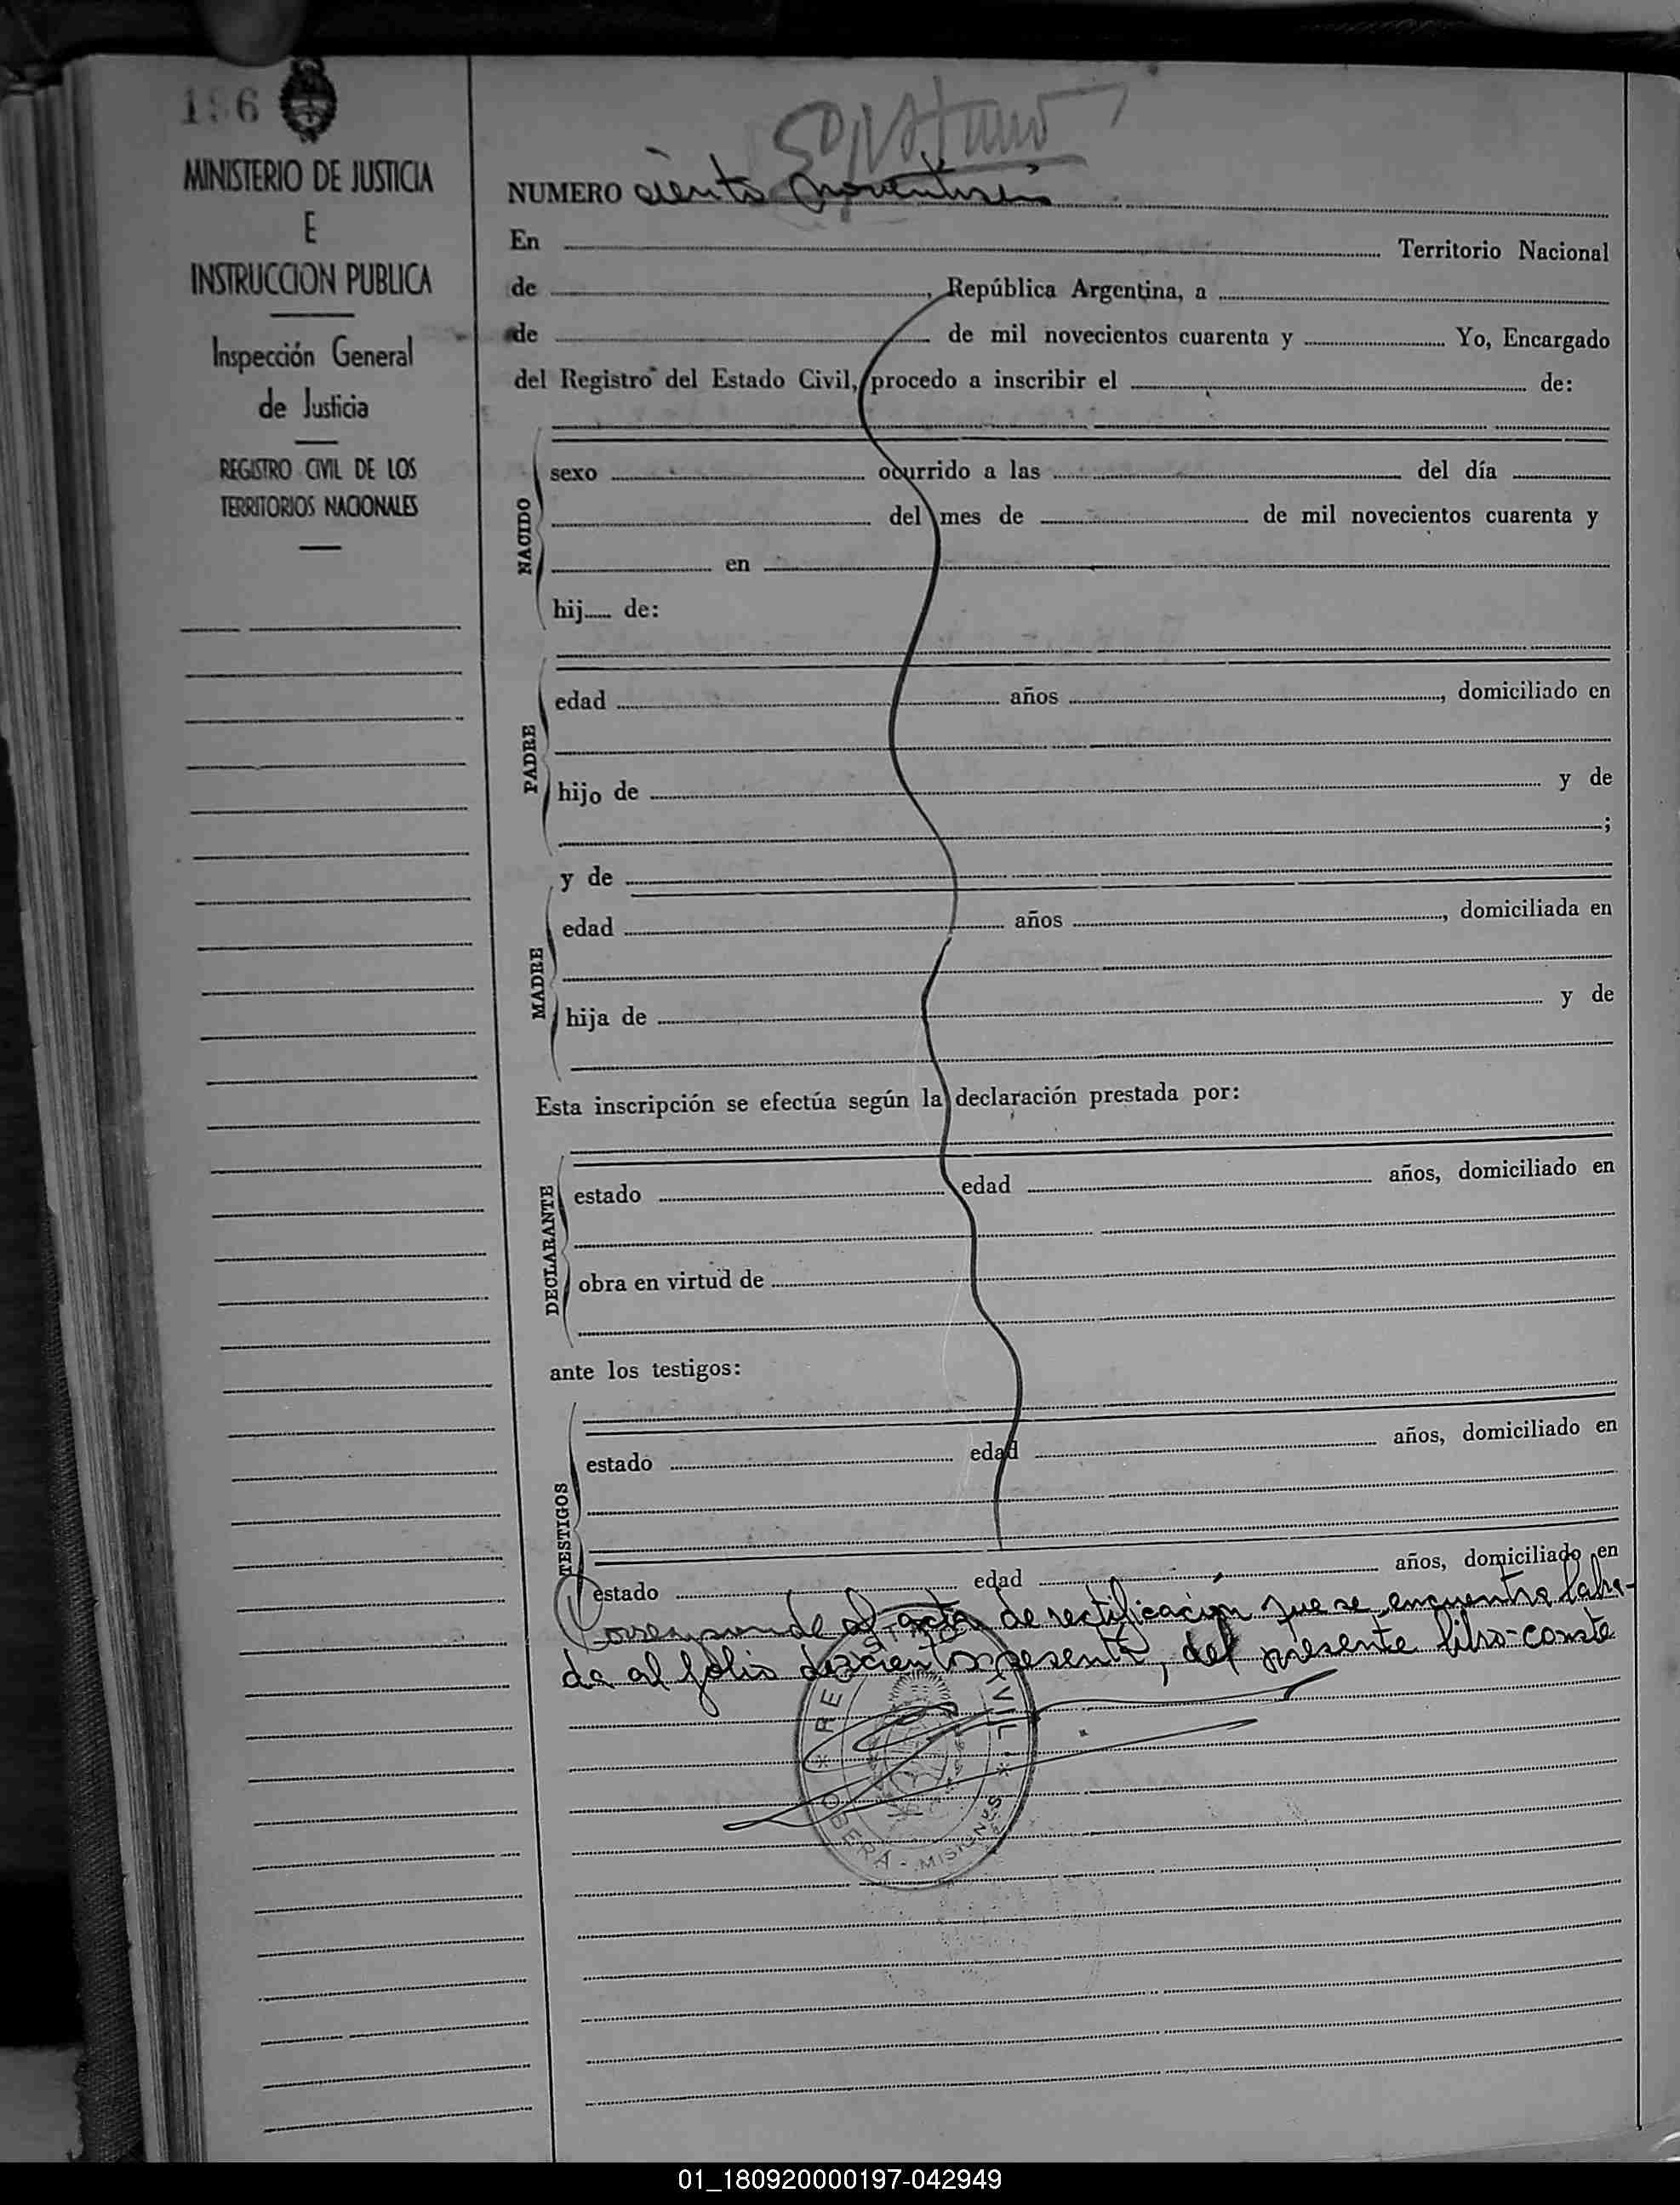 MINISTERIO DE JUSTICIA
E
INSTRUCCION PUBLICA
Inspección General
de Justicia
REGISTRO CIVIL DE LOS
TERRITORIOS NACIONALES
NUMERO ciento noventiseis
En Territorio Nacional
de , República Argentina, a
de de mil novecientos cuarenta y Yo, Encargado
del Registro del Estado Civil, procedo a inscribir el de:
NACIDO
sexo ocurrido a las del día
del mes de de mil novecientos cuarenta y
en
hij de:
PADRE
edad años , domiciliado en
hijo de y de
;
y de
MADRE
edad años , domiciliada en
hija de y de
Esta inscripción se efectúa según la declaración prestada por:
DECLARANTE
estado edad años, domiciliado en
obra en virtud de
ante los testigos:
TESTIGOS
estado edad años, domiciliado en
estado edad años, domiciliado en
Corresponde al acta de rectificación que se encuentra labra-
da al folio doscientos sesenta, del presente libro-conste
REGISTRO CIVIL
OBERÁ - MISIONES
01_180920000197-042949